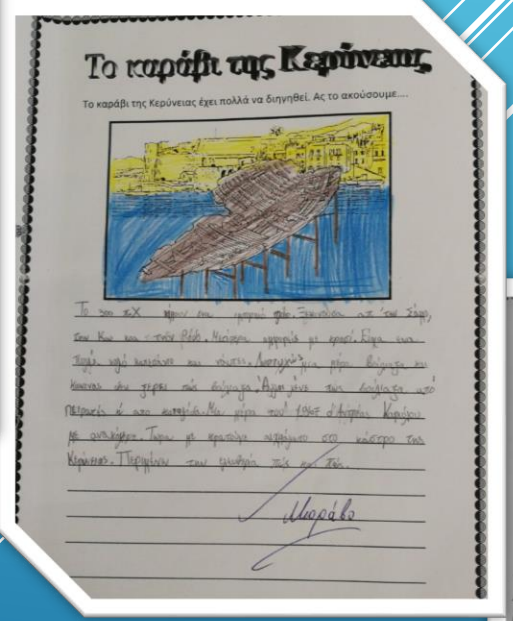 Το καράβι της Κερύνειας
Το καράβι της Κερύνειας έχει πολλά να διηγηθεί. Ας το ακούσουμε....
Το 300 π.Χ ήμουν ένα εμπορικό Ξεκινούσα απ' την Σάμο,
την Κω και την Ρόδο. Μετέφερα αμφορείς με κρασί. Είχα ένα
πολύ καλό καπετάνιο και ναύτες. μια μέρα βούλιαξα και
κανένας δεν ξέρει πώς βούλιαξα. λένε πως βούλιαξα από
πειρατές ή από καταιγίδα. Μια μέρα του 1967 ο Ανδρέας Καριόλου
με ανακάλυψε. Τώρα με κρατούν στο κάστρο της
Κερύνειας. Περιμένω την πώς και πώς.
Μπράβο